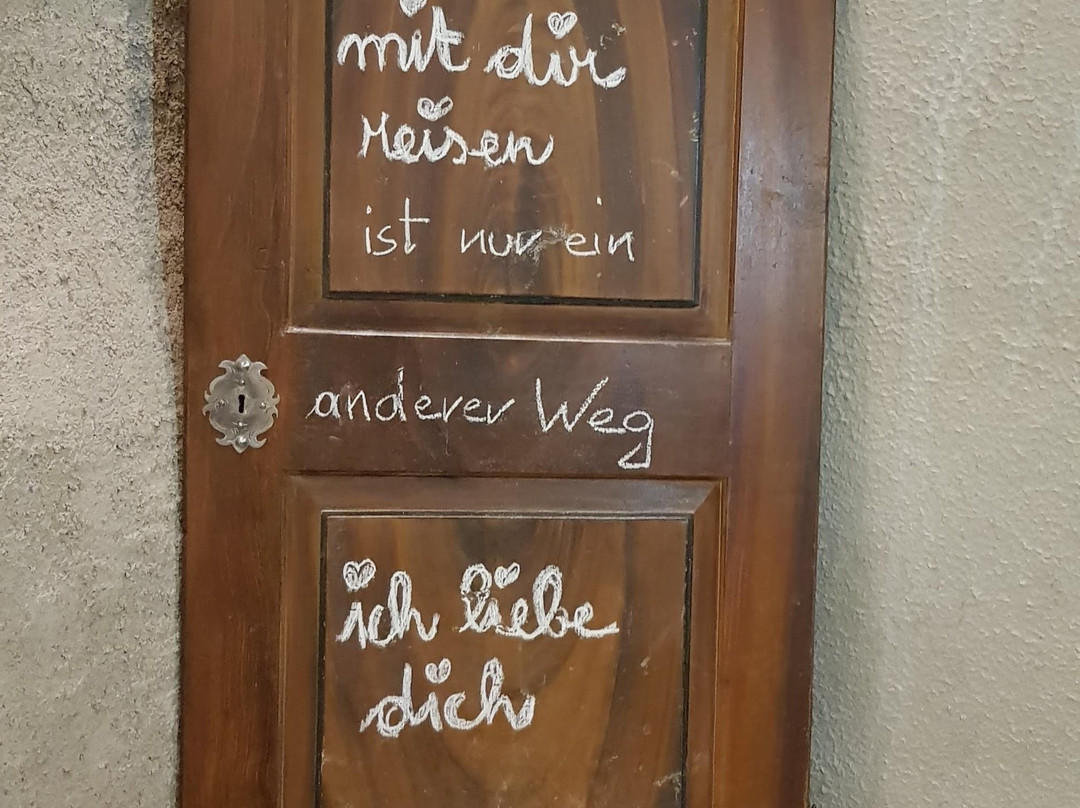 mit dir
Reisen
ist nur ein
anderer Weg
ich liebe
dich